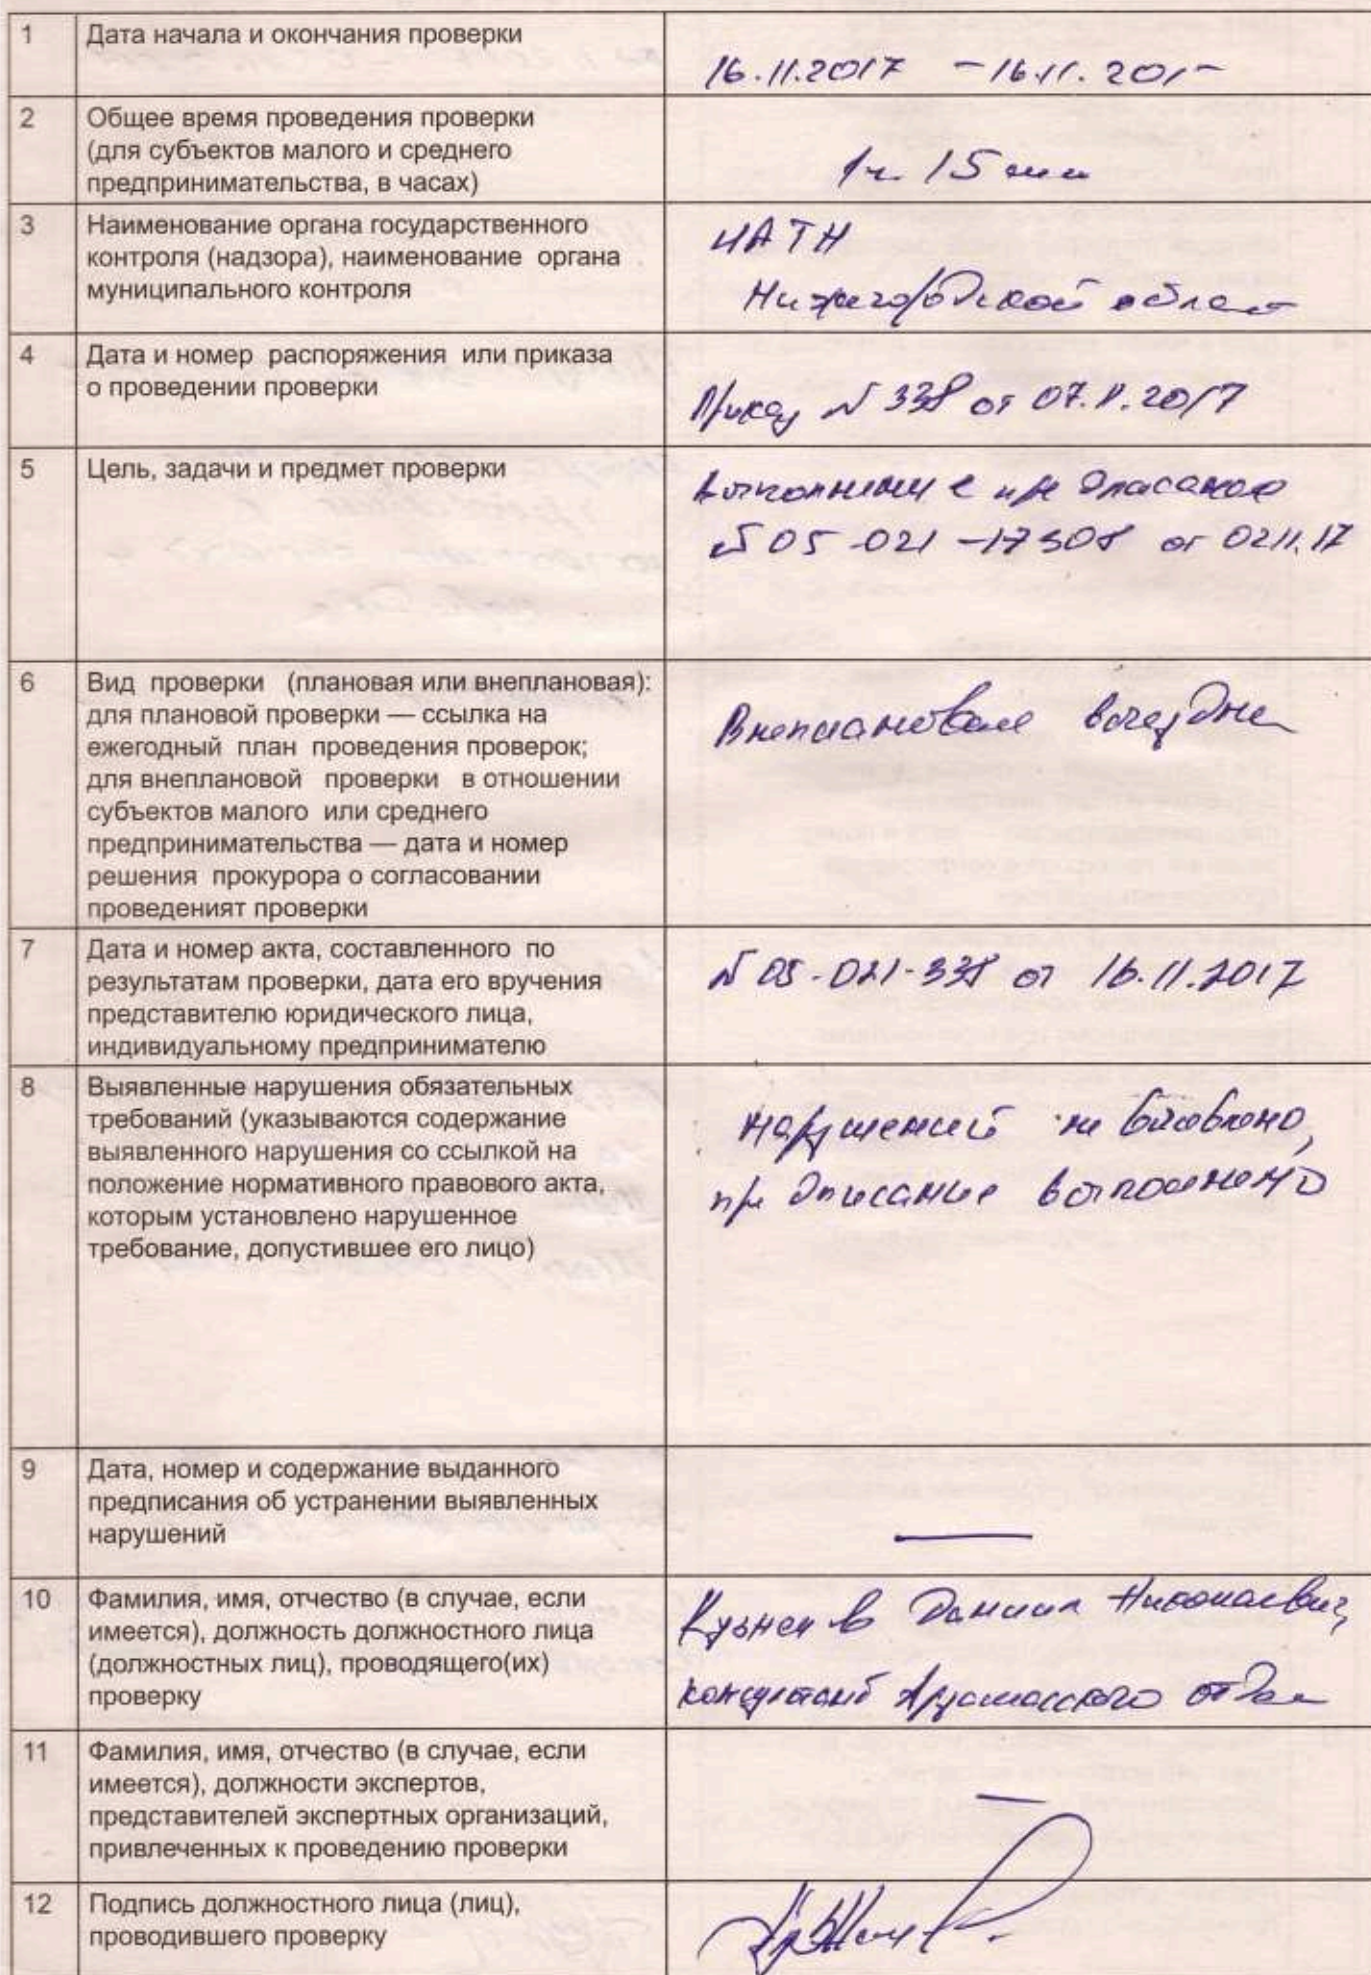 1 Дата начала и окончания проверки
16.11.2017 - 16.11.201
2 Общее время проведения проверки
(для субъектов малого и среднего
предпринимательства, в часах)
1ч. 15 мин
3 Наименование органа государственного
контроля (надзора), наименование органа
муниципального контроля
ИАТН
Нижегородской област
4 Дата и номер распоряжения или приказа
о проведении проверки
Приказ № 338 от 07.11.2017
5 Цель, задачи и предмет проверки
выполнение предписания
№ 05-021-17308 от 02.11.17
6 Вид проверки (плановая или внеплановая):
для плановой проверки — ссылка на
ежегодный план проведения проверок;
для внеплановой проверки в отношении
субъектов малого или среднего
предпринимательства — дата и номер
решения прокурора о согласовании
проведеният проверки
Внеплановая выездная
7 Дата и номер акта, составленного по
результатам проверки, дата его вручения
представителю юридического лица,
индивидуальному предпринимателю
№ 05-021-338 от 16.11.2017
8 Выявленные нарушения обязательных
требований (указываются содержание
выявленного нарушения со ссылкой на
положение нормативного правового акта,
которым установлено нарушенное
требование, допустившее его лицо)
нарушений не выявлено,
предписание выполнено
9 Дата, номер и содержание выданного
предписания об устранении выявленных
нарушений
—
10 Фамилия, имя, отчество (в случае, если
имеется), должность должностного лица
(должностных лиц), проводящего(их)
проверку
Кузнецов Даниил Николаевич,
консультант Арзамасского отдела
11 Фамилия, имя, отчество (в случае, если
имеется), должности экспертов,
представителей экспертных организаций,
привлеченных к проведению проверки
—
12 Подпись должностного лица (лиц),
проводившего проверку